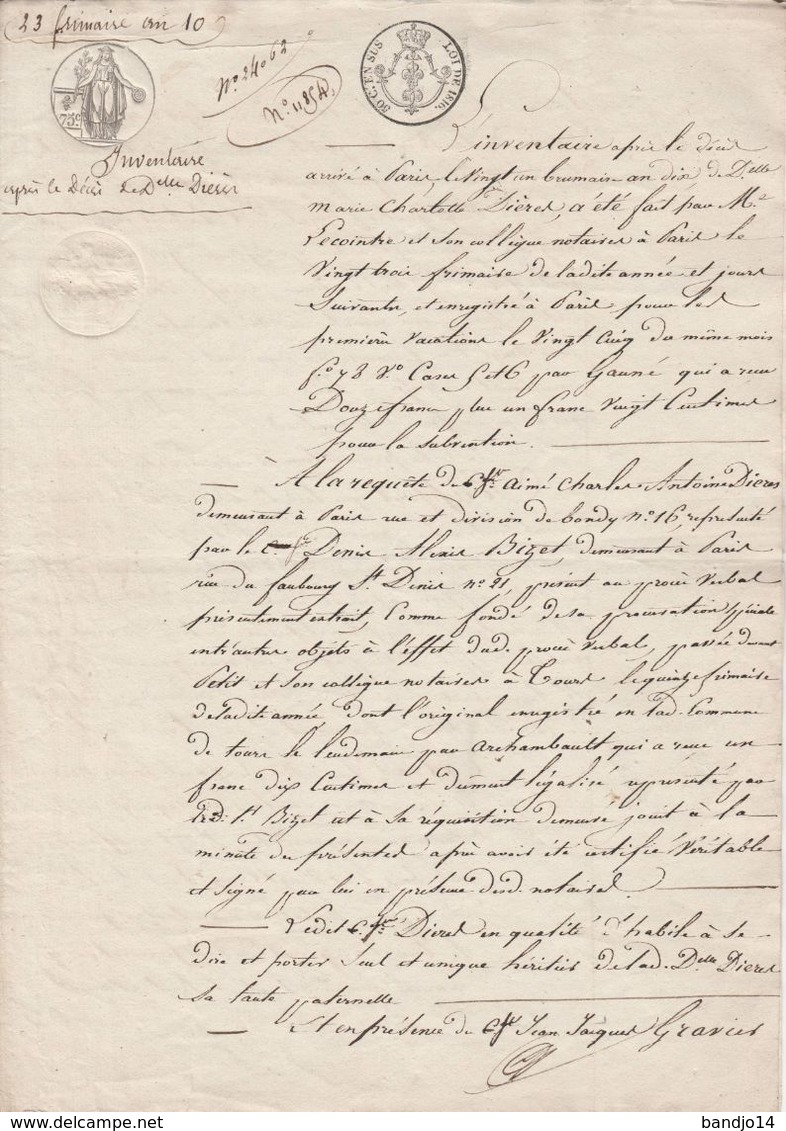 23 frimaire an 10
N.o 24062
N.o 11854
50 C. EN SUS LOI DE 1816.
75c
Inventaire
après le Décès de Delle Dières
L'inventaire après le décès
arrivé à Paris, le vingt un brumaire an dix de Delle
Marie Charlotte Dières, a été fait par Me
Lecointre et son collègue notaires à Paris le
vingt trois frimaire de ladite année et jours
suivants, et enregistré à Paris pour les
premières vacations le vingt cinq du même mois
f.o 78 V.o Cases 5 et 6 par Gauné qui a recu
Douze francs plus un franc vingt Centimes
pour la subvention.
A la requête de Aimé Charles Antoine Dieres
demeurant à Paris rue et division de bondy no. 16, representé
par le Denis Alexis Bizet, demeurant à Paris
rue du faubourg St. Denis no. 21, présent au procès verbal
présentement extrait, comme fondé de sa procuration spéciale
entr'autres objets à l'effet dud. procès verbal, passée devant
Petit et son collègue notaires à Tours le quinze frimaire
de ladite année, dont l'original enregistré en lad. Commune
de tours le lendemain par archambault qui a recu un
franc dix Centimes et dûment légalisé representé par
led. Bizet est à sa réquisition demeuré joint à la
minute des présentes après avoir été certifié véritable
et signé par lui en présence desd. notaires.
Ledit Dieres en qualité d'habile à se
dire et porter seul et unique héritier de lad. Delle Dieres
sa tante paternelle
Et en présence de Jean Jacques Gravier
bandjo14